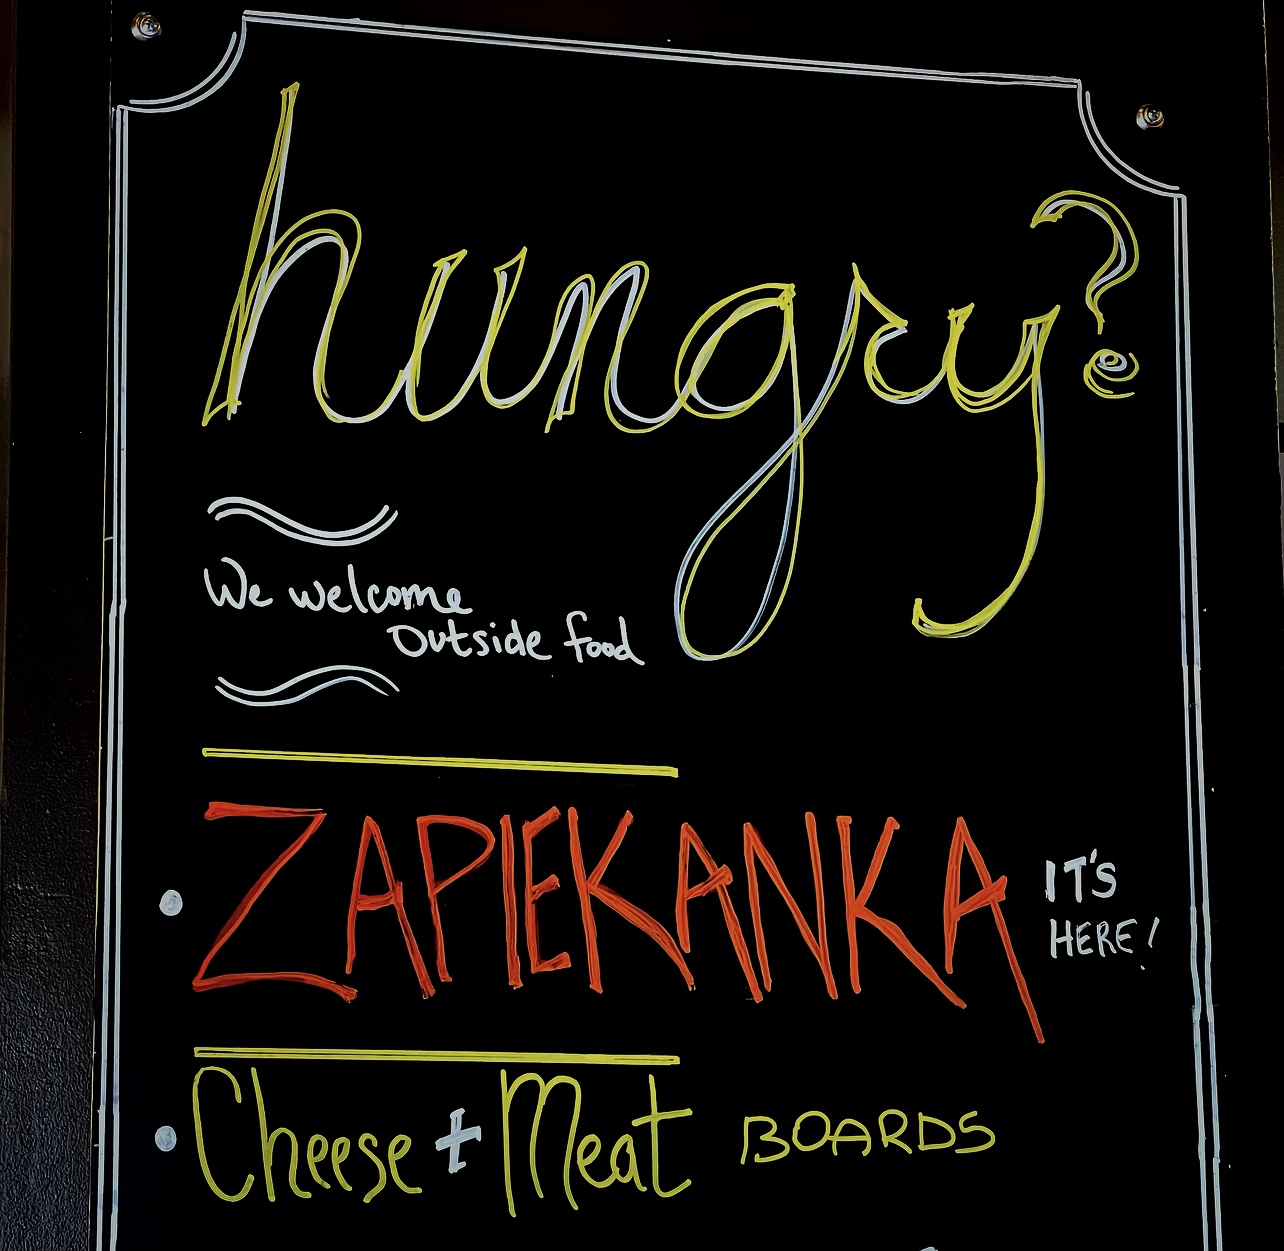 hungry?
We welcome
outside food
ZAPIEKANKA IT'S
HERE!
Cheese + Meat BOARDS